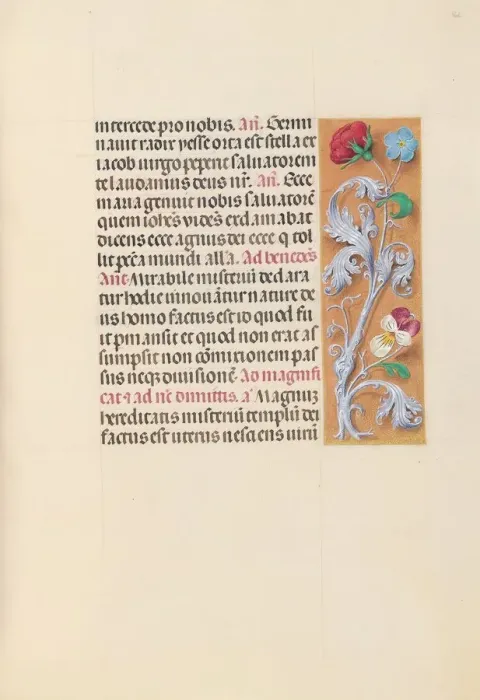 intercede pro nobis. Añ. Germi
nauit radix yesse orta est stella ex
iacob uirgo peperit saluatorem
te laudamus deus nr̃. Añ. Ecce
maria genuit nobis saluatorē
quem iohēs vidēs exclamabat
dicens ecce agnus dei ecce q̇ tol
lit pctā mundi allā. Ad benedcs̄
Añt Mirabile misteriū declara
tur hodie innouāntur nature de
us homo factus est id quod fu
it pmansit et quod non erat as
sumpsit non cōmixtionem pas
sus neqȝ diuisionē. Ad magnifi
cat ⁊ ad nc̄ dimittis. a᷒ Magnuȝ
hereditatis misteriū templū dei
factus est uterus nesciens uirū